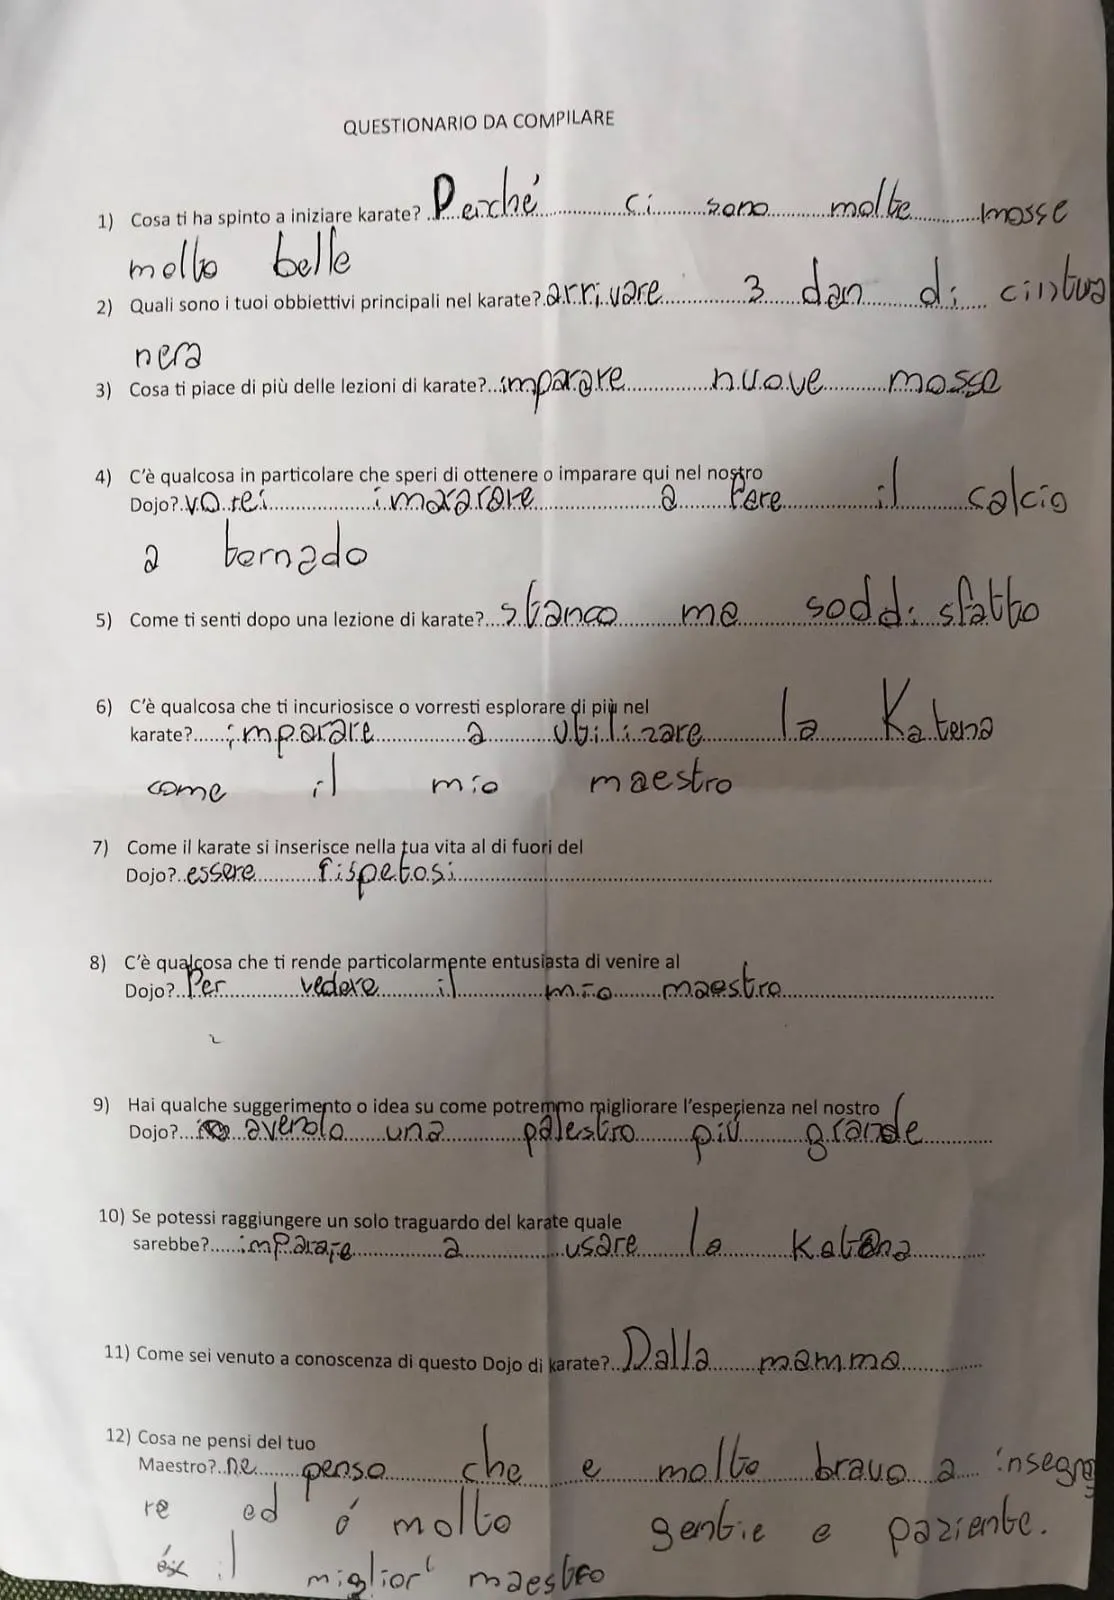 QUESTIONARIO DA COMPILARE
1) Cosa ti ha spinto a iniziare karate? Perché ci sono molte mosse
molto belle
2) Quali sono i tuoi obbiettivi principali nel karate? arrivare 3 dan di cintua
nera
3) Cosa ti piace di più delle lezioni di karate? imparare nuove mosse
4) C'è qualcosa in particolare che speri di ottenere o imparare qui nel nostro
Dojo? vorei imararare a fere il calcio
a tornado
5) Come ti senti dopo una lezione di karate? stanco ma soddisfatto
6) C'è qualcosa che ti incuriosisce o vorresti esplorare di più nel
karate? imparare a utilizare la Katena
come il mio maestro
7) Come il karate si inserisce nella tua vita al di fuori del
Dojo? essere rispetosi
8) C'è qualcosa che ti rende particolarmente entusiasta di venire al
Dojo? Per vedere il mio maestro
9) Hai qualche suggerimento o idea su come potremmo migliorare l'esperienza nel nostro
Dojo? una più grande
10) Se potessi raggiungere un solo traguardo del karate quale
sarebbe? imparare a usare la Katana
11) Come sei venuto a conoscenza di questo Dojo di karate? Dalla mamma
12) Cosa ne pensi del tuo
Maestro? ne penso che e molto bravo a insegna
re ed é molto gentie e paziente.
il miglior maestro